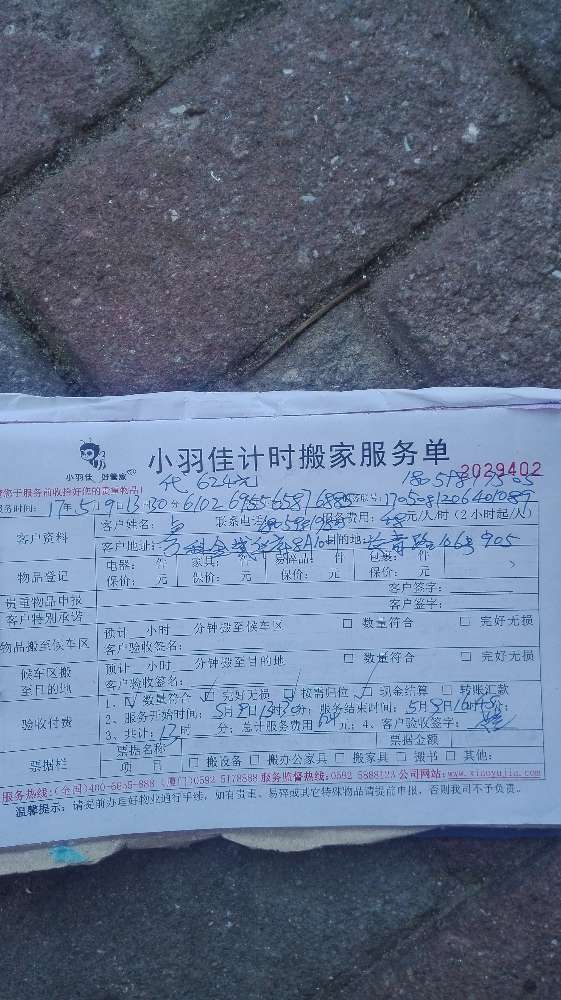 小羽佳 好管家
小羽佳计时搬家服务单
2029402
代 624元
请您于服务前收拾好您的贵重物品！
服务时间：17年5月9日13时30分 6102 6965 6581 6888
客户资料
客户姓名：
联系电话：
服务费用：
元/人/时（2小时起/人）
客户地址：
目的地：
905
物品登记
电器： 件 家具： 件 易碎品： 件 包装： 件
保价： 元 保价： 元 保价： 元 保价： 元
贵重物品申报
客户签字：
客户特别承诺
客户签字：
物品搬至候车区
预计__小时__分钟搬至候车区 □ 数量符合 □ 完好无损
客户验收签名：
候车区搬至目的地
预计__小时__分钟搬至目的地 □ 数量符合 □ 完好无损
客户验收签名：
验收付费
1、☑ 数量符合 □ 完好无损 □ 按需归位 □ 现金结算 □ 转账汇款
2、服务开始时间：5月8日13时30分；服务结束时间：5月8日16时45分；
3、共计：13时 分；总计服务费用 元；4、客户验收签字：
票据栏
票据名称 票据金额
项 目 □ 搬设备 □ 搬办公家具 □ 搬家具 □ 搬书 □ 其他：
服务热线：(全国)400-6655-888 (厦门)0592 5178588 服务监督热线：0592 5888123 公司网站：www.xiaoyujia.com
温馨提示：请提前办理好物业通行手续，如有贵重、易碎或其它特殊物品请提前申报，否则我司不予负责。